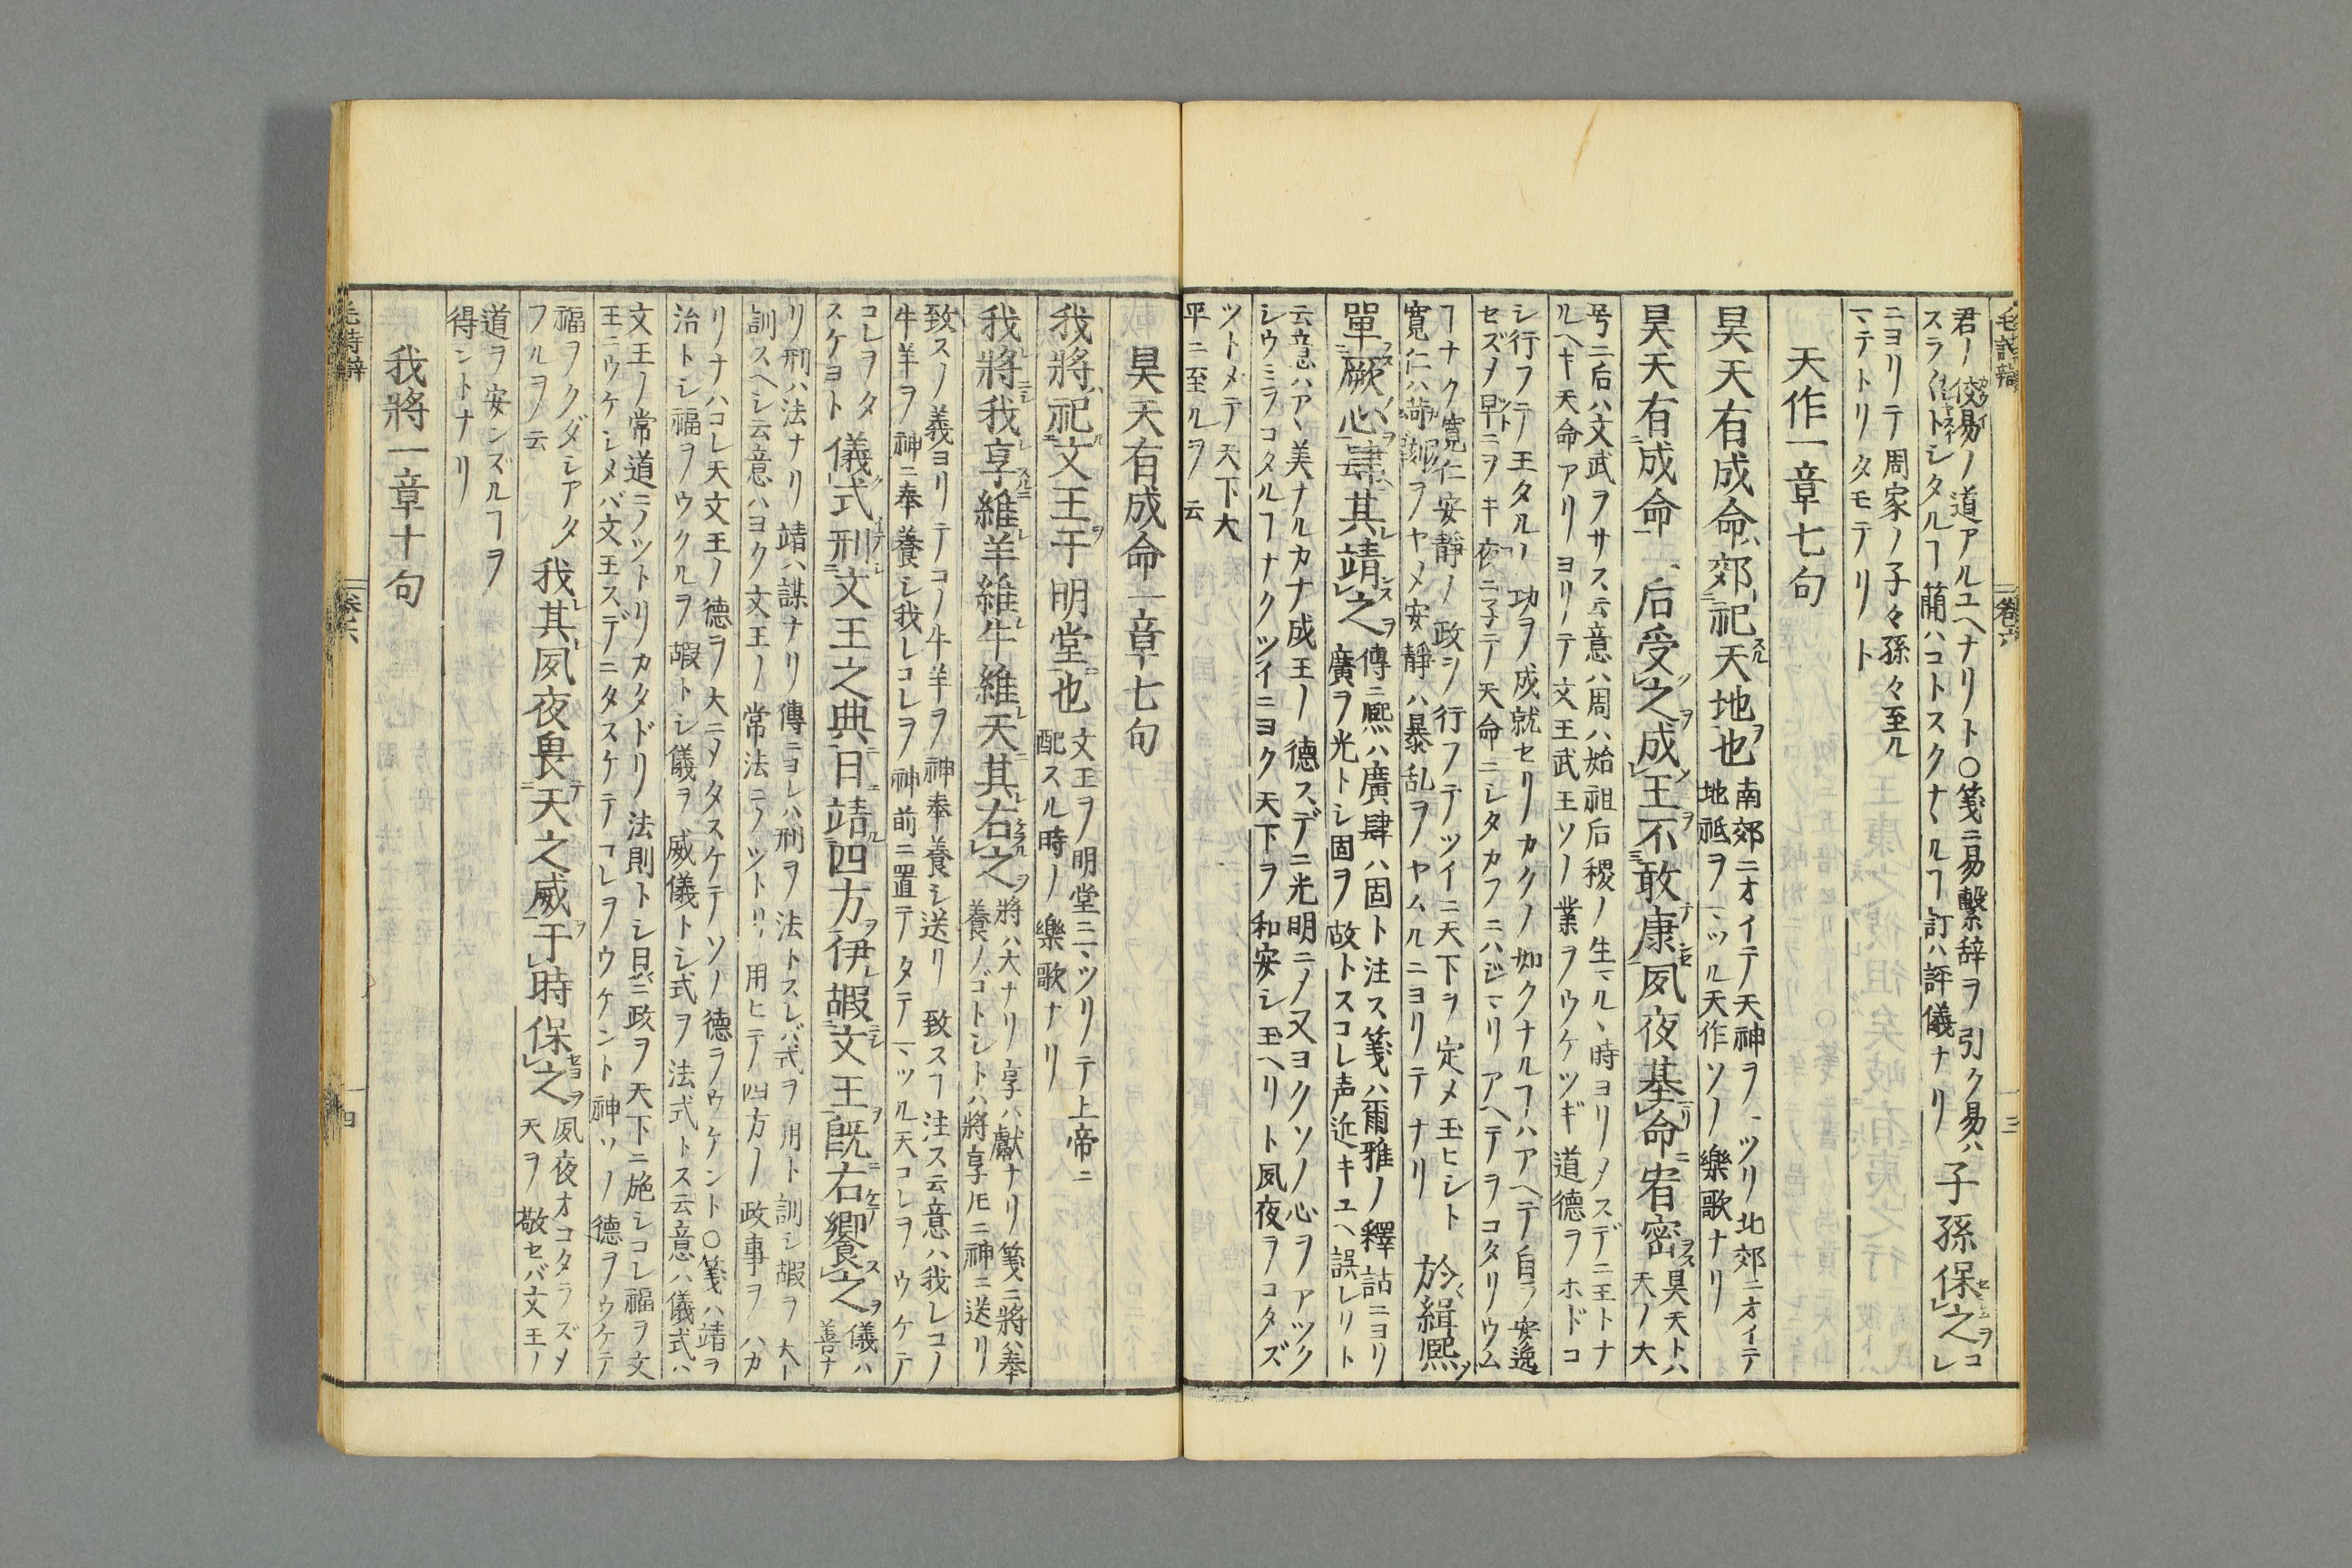 君ノ佼易ノ道アルユヘナリト○箋ニ易繋辞ヲ引ク易ハ
スラ〱トシタルヿ簡ハコトスクナヽルヿ訂ハ評儀ナリ
子孫保之
コレ
ニヨリテ周家ノ子々孫々至ル
マテトリタモテリト
天作一章七句
昊天有成命郊祀天地也
南郊ニオイテ天神ヲマツリ北郊ニオイテ
地祇ヲマツル天作ソノ樂歌ナリ
昊天有成命二后受之成王不敢康夙夜基命宥密
昊天トハ
天ノ大
号二后ハ文武ヲサス云意ハ周ハ始祖后稷ノ生マルヽ時ヨリノスデニ王トナ
ルヘキ天命アリヨリノテ文王武王ソノ業ヲウケツギ道德ヲホドコ
シ行フテ王タルノ功ヲ成就セリカクノ如クナルヿハアヘテ自ラ安逸
セズメ早ニヲキ夜ニ子テ天命ニシタカフニハジマリアヘテヲコタリウム
ヿナク寛仁安靜ノ政ヲ行フテツイニ天下ヲ定メ玉ヒシト
寛仁ハ苛刻ヲヤメ安靜ハ暴乱ヲヤムルニヨリテナリ
於緝熙
單厥心肆其靖之
傳ニ熙ハ廣肆ハ固ト注ス箋ハ爾雅ノ釋詁ニヨリ
廣ヲ光トシ固ヲ故トスコレ声近キユヘ誤レリト
云意ハアヽ美ナルカナ成王ノ德スデニ光明ニメ又ヨクソノ心ヲアツク
シウミヲコタルヿナクツイニヨク天下ヲ和安シ玉ヘリト夙夜ヲコタズ
ツトメテ天下大
平ニ至ルヲ云
昊天有成命一章七句
我將祀文王于明堂也
文王ヲ明堂ニマツリテ上帝ニ
配スル時ノ樂歌ナリ
我將我享維羊維牛維天其右之
將ハ大ナリ享ハ獻ナリ箋ニ將ハ奉
養ノゴトシトハ將享𪜈ニ神ニ送リ
致スノ義ヨリテコノ牛羊ヲ神奉養シ送リ致スヿ注ス云意ハ我レコノ
牛羊ヲ神ニ奉養シ我レコレヲ神前ニ置テタテマツル天コレヲウケテ
コレヲタ
スケヨト
儀式刑文王之典日靖四方伊嘏文王既右饗之
儀ハ
善ナ
リ刑ハ法ナリ靖ハ謀ナリ傳ニヨレハ刑ヲ法トスレバ式ヲ用ト訓シ嘏ヲ大ト
訓スヘシ云意ハヨク文王ノ常法ニノツトリ用ヒテ四方ノ政事ヲハカ
リナハコレ天文王ノ德ヲ大ニメタスケテソノ德ヲウケント○箋ハ靖ヲ
治トシ福ヲウクルヲ嘏トシ儀ヲ威儀トシ式ヲ法式トス云意ハ儀式ハ
文王ノ常道ニノツトリカタドリ法則トシ日〻政ヲ天下ニ施シコレ福ヲ文
王ニウケシメバ文王スデニタスケテコレヲウケント神ソノ德ヲウケテ
福ヲクダシアタ
フルヲソ云
我其夙夜畏天之威于時保之
夙夜オコタラズメ
天ヲ敬セバ文王ノ
道ヲ安ンズルヿヲ
得ントナリ
我將一章十句